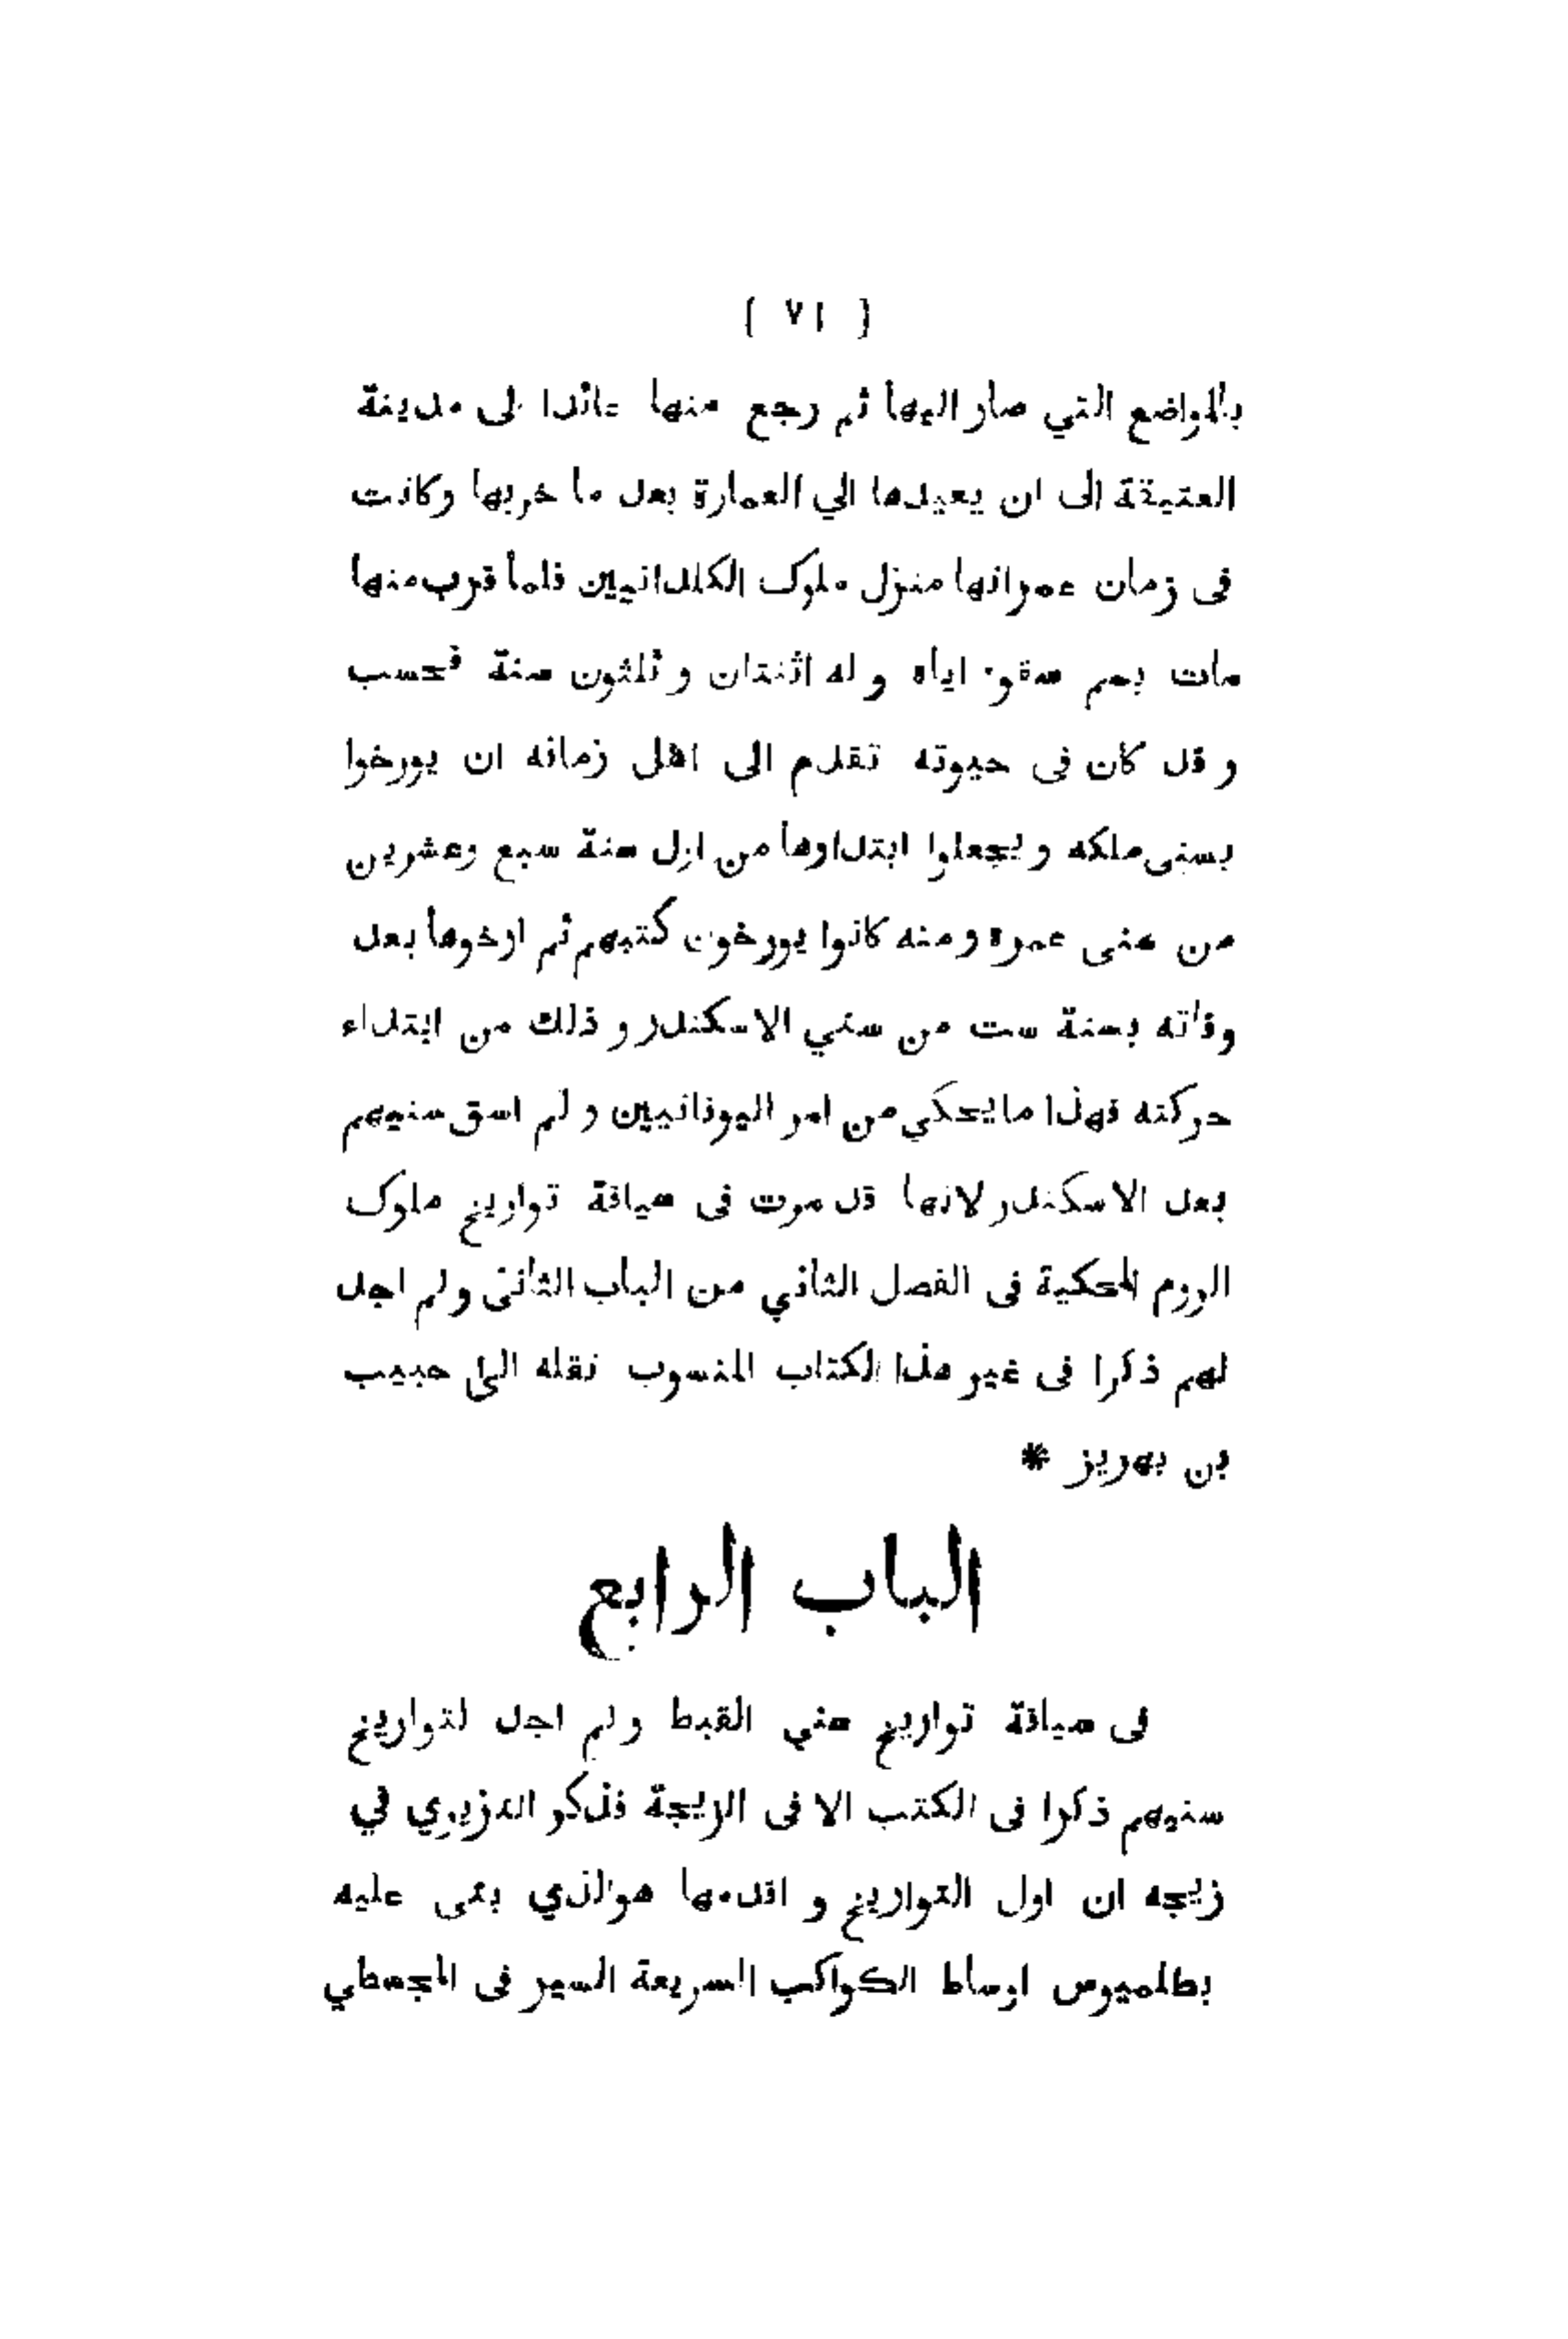 ( ٧١ )
بالمواضع التي صار اليها ثم رجع منها عائدا الى مدينة
العتيقة الى ان يعيدها الي العمارة بعد ما خربها وكانت
فى زمان عمرانها منزل ملوك الكلدانيين فلما قرب منها
مات بسم سقوه اياه و له اثنتان و ثلثون سنة فحسب
و قد كان فى حيوته تقدم الى اهل زمانه ان يورخوا
بسنى ملكه و يجعلوا ابتداوها من اول سنة سبع وعشرين
من سنى عمره ومنه كانوا يورخون كتبهم ثم ارخوها بعد
وفاته بسنة ست من سني الاسكندر و ذلك من ابتداء
حركته فهذا ما يحكي من امر اليونانيين و لم اسق سنيهم
بعد الاسكندر لانها قد مرت فى سياقة تواريخ ملوك
الروم المحكية فى الفصل الثاني من الباب الثانى و لم اجد
لهم ذكرا فى غير هذا الكتاب المنسوب نقله الى حبيب
بن بهريز *
الباب الرابع
فى سياقة تواريخ سني القبط ولم اجد لتواريخ
سنيهم ذكرا فى الكتب الا فى الزيجة فذكر النزيري في
زيجه ان اول التواريخ و اقدمها هو الذي بنى عليه
بطلميوس اوساط الكواكب السريعة السير فى المجسطي